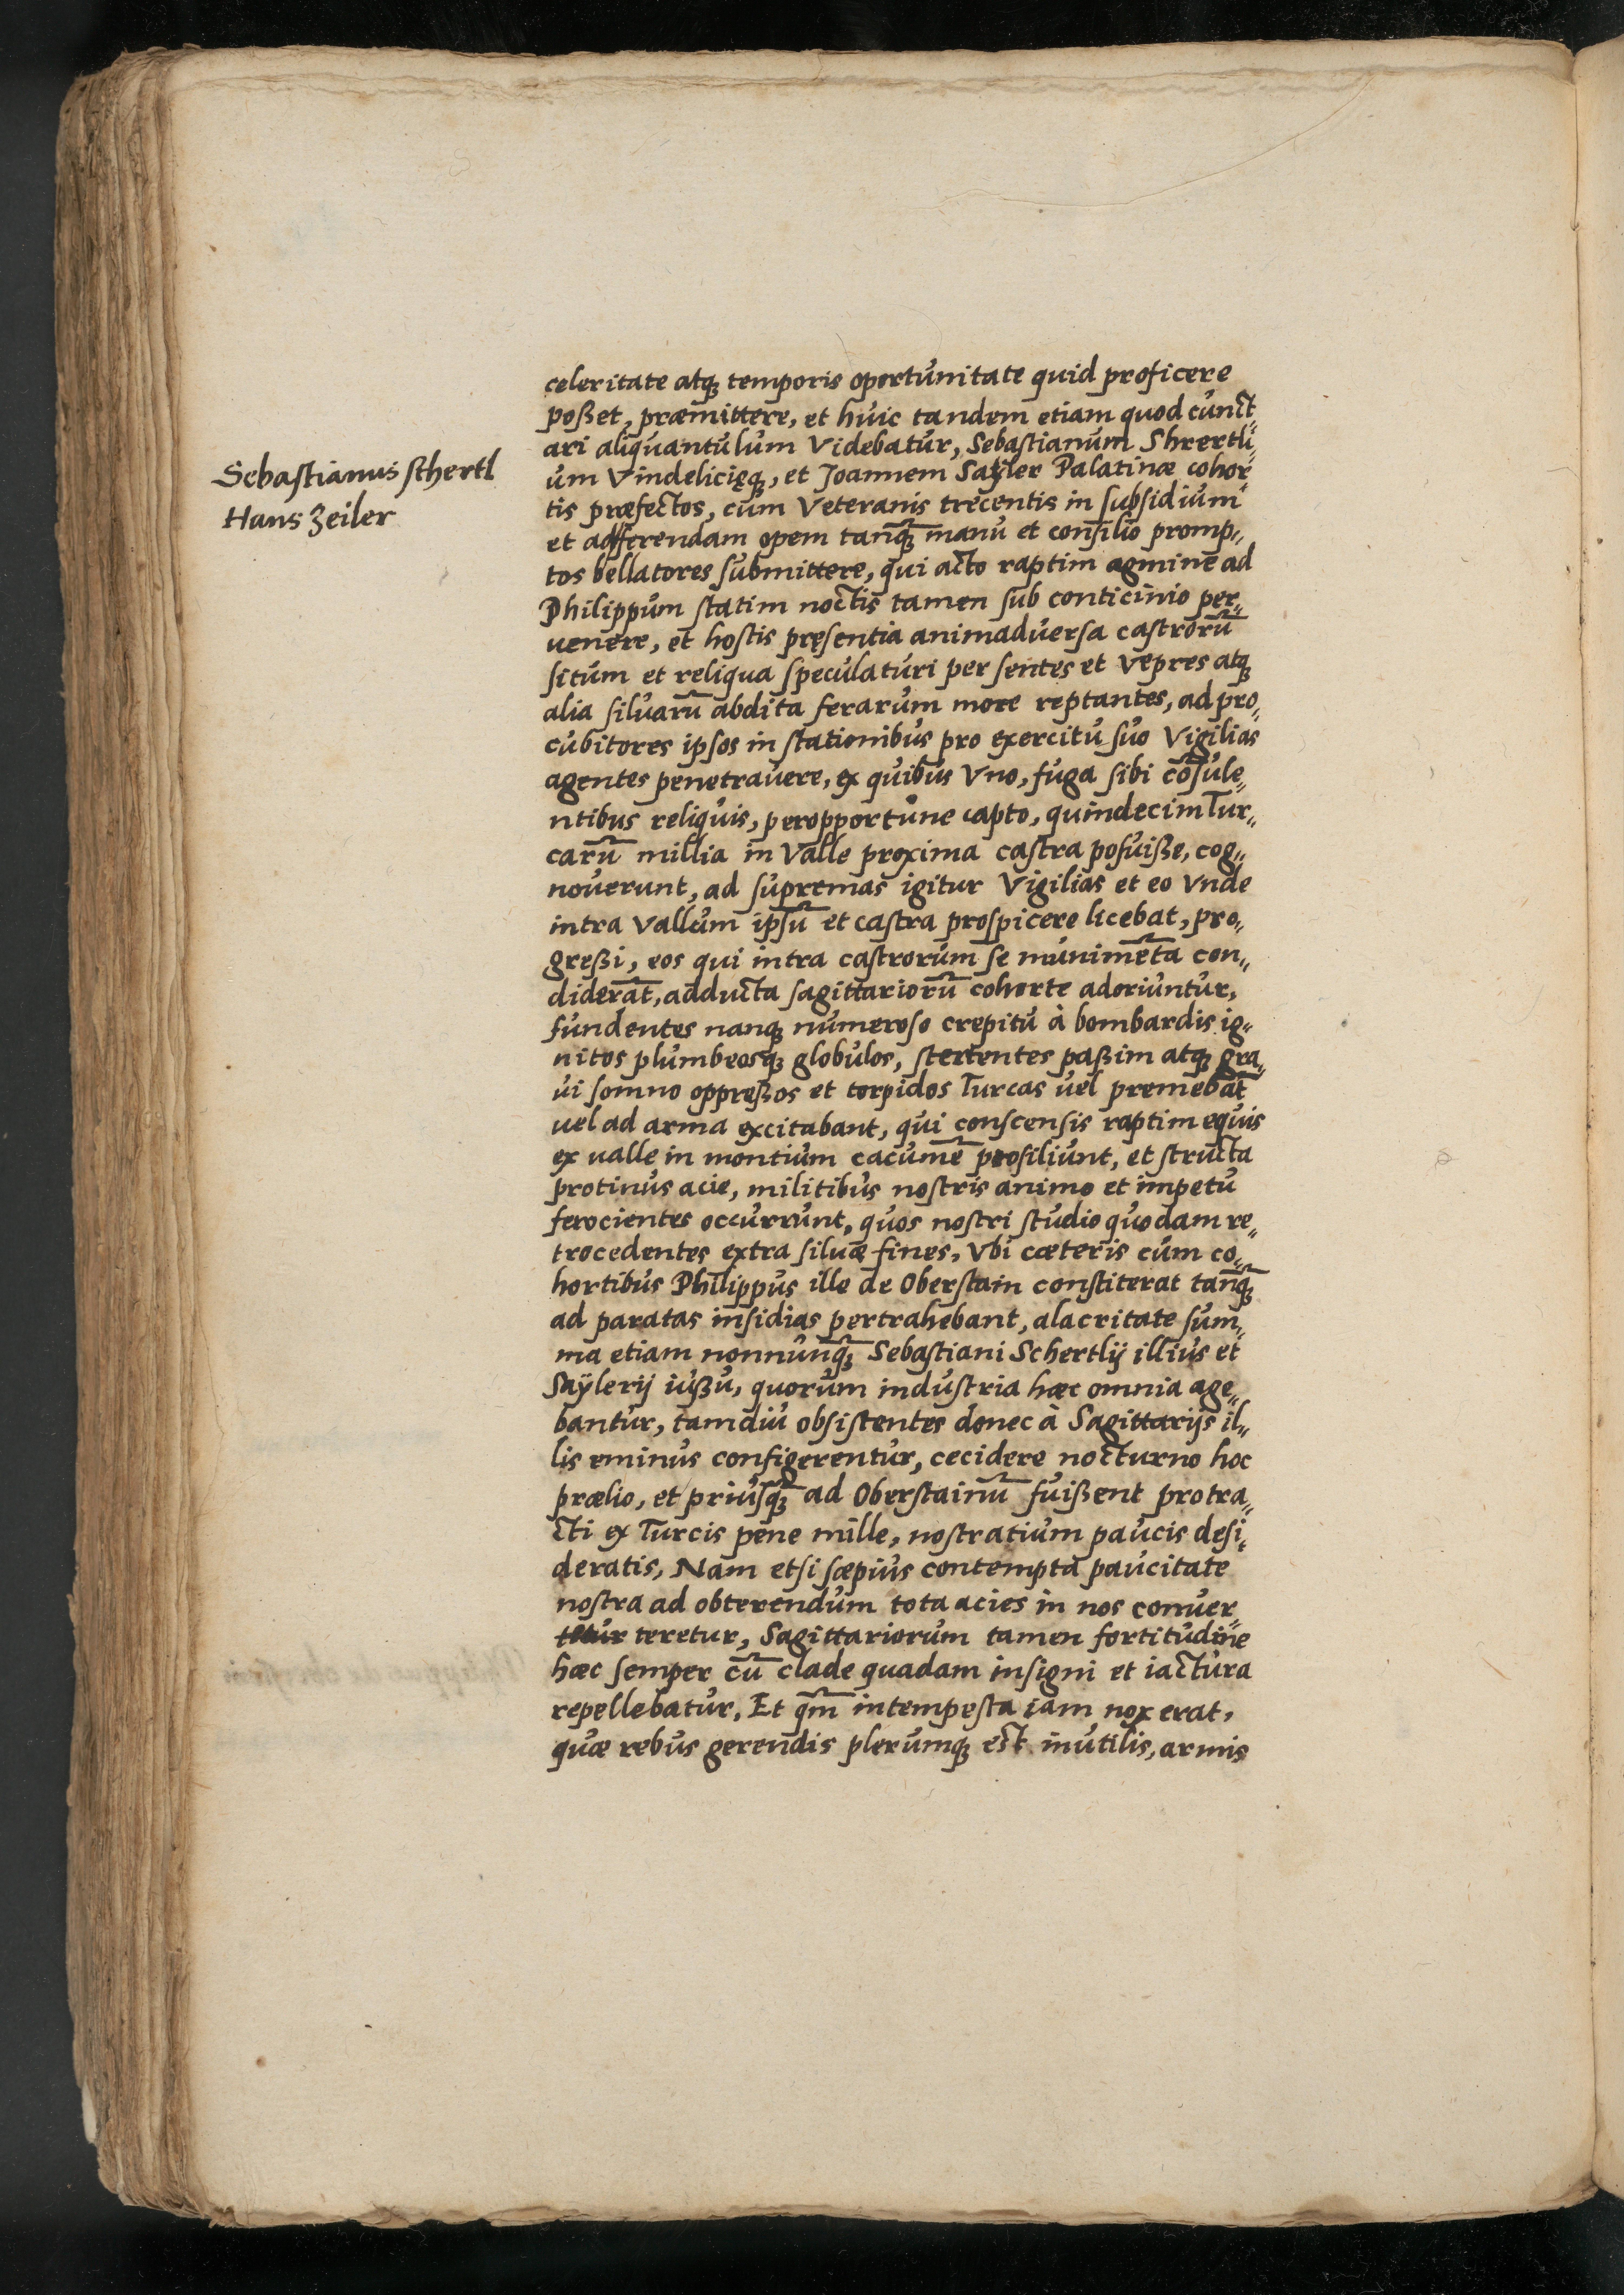 Sebastianus schertl
Hans Zeiler
celeritate atq; temporis oportunitate quid proficere
poßet, præmittere, et huic tandem etiam quod cunct„
ari aliquantulum Videbatur, Sebastianum Shrertli„
um Vindelicięq;, et Joannem Sayler Palatinæ cohor„
tis præfectos, cum Veteranis trecentis in subsidium
et adferendam opem tanq̃; manu et consilio promp„
tos bellatores submittere, qui acto raptim agmine ad
Philippum statim noctis tamen sub conticinio per„
uenere, et hostis pręsentia animaduersa castrorũ
situm et reliqua speculaturi per sentes et vepres atq;
alia siluarũ abdita ferarum more reptantes, ad pro„
cubitores ipsos in stationibus pro exercitu suo Vigilias
agentes penetrauere, ex quibus Vno, fuga sibi cõsule„
ntibus reliquis, peropportune capto, quindecim Tur„
carũ millia in Valle proxima castra posuiße, cog„
nouerunt, ad supremas igitur Vigilias et eo Vnde
intra Vallum ipsũ et castra prospicere licebat, pro„
greßi, eos qui intra castrorum se munimẽta con„
diderãt, adducta sagittariorũ cohorte adoriuntur,
fundentes nanq; numeroso crepitu à bombardis ig„
nitos plumbeosq; globulos, stertentes paßim atq; gra„
ui somno oppreßos et torpidos Turcas uel premebãt
uel ad arma excitabant, qui conscensis raptim equis
ex ualle in montium cacumẽ prosiliunt, et structa
protinus acie, militibus nostris animo et impetu
ferocientes occurrunt, quos nostri studio quodam re„
trocedentes extra siluæ fines, Vbi cæteris cum co„
hortibus Philippus ille de Oberstain constiterat tanq̃;
ad paratas insidias pertrahebant, alacritate sum„
ma etiam nonnunq̃; Sebastiani Schertlij illius et
Saÿlerij iußu, quorum industria hæc omnia age„
bantur, tamdiu obsistentes donec à Sagittarijs il„
lis eminus configerentur, cecidere nocturno hoc
prælio, et priusq̃; ad Oberstainũ fuißent protra„
cti ex Turcis pene mille, nostratium paucis desi„
deratis, Nam etsi sæpius contempta paucitate
nostra ad obterendum tota acies in nos conuer„
tetur teretur, Sagittariorum tamen fortitudine
hæc semper cũ clade quadam insigni et iactura
repellebatur, Et qm̃ intempesta iam nox erat,
quæ rebus gerendis plerumq; est inutilis, armis